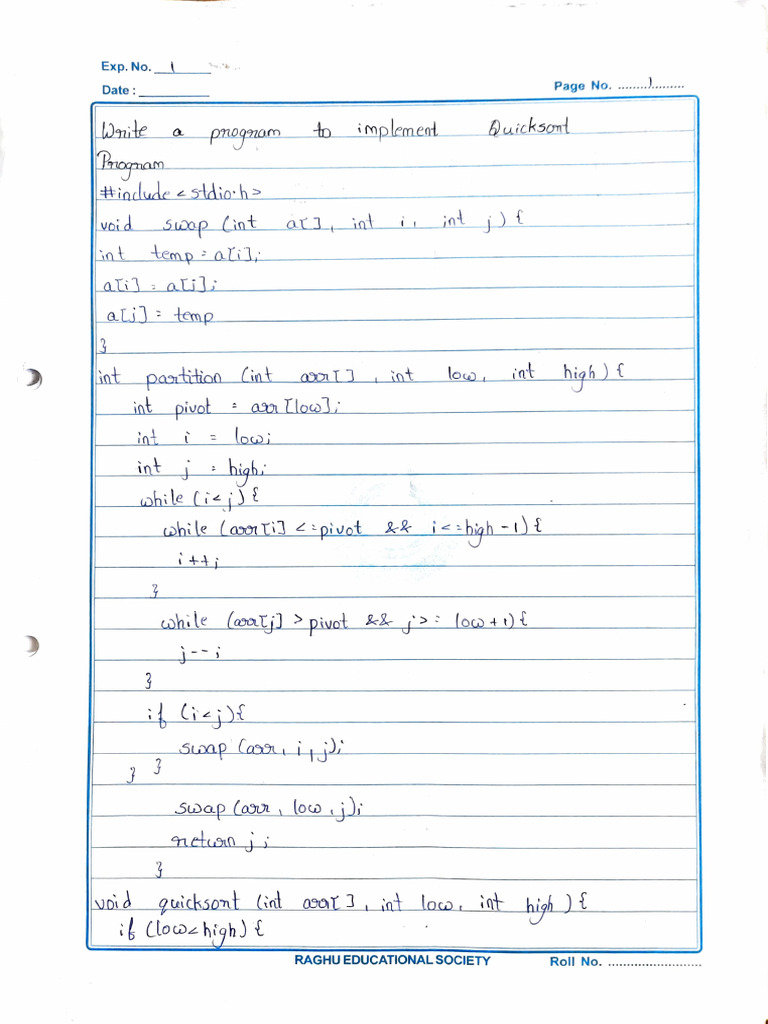 Exp. No. 1
Date :
Page No. 1
Write a program to implement Quicksort
Program
#include < stdio.h >
void swap (int a[], int i, int j) {
int temp = a[i];
a[i] = a[j];
a[j] = temp
}
int partition (int arr[], int low, int high) {
int pivot = arr[low];
int i = low;
int j = high;
while (i < j) {
while (arr[i] <= pivot && i <= high - 1) {
i++;
}
while (arr[j] > pivot && j >= low + 1) {
j--;
}
if (i < j) {
swap (arr, i, j);
} }
swap (arr, low, j);
return j;
}
void quicksort (int arr[], int low, int high) {
if (low < high) {
RAGHU EDUCATIONAL SOCIETY
Roll No.